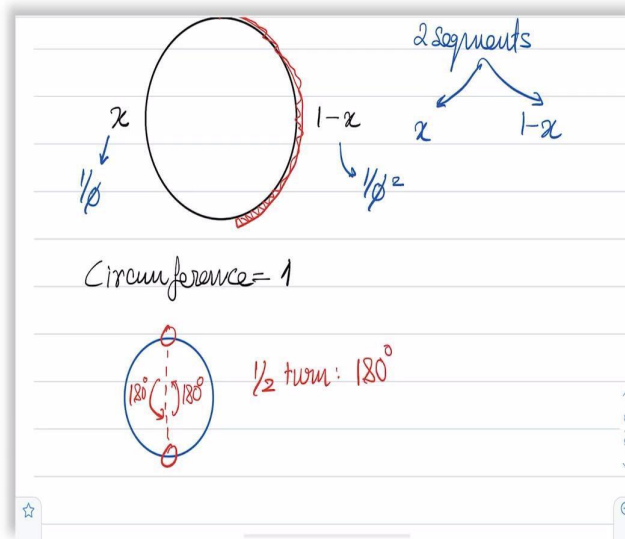 2 segments
x
1-x
x
1-x
1/ϕ
1/ϕ²
Circumference = 1
180°
180°
1/2 turn: 180°